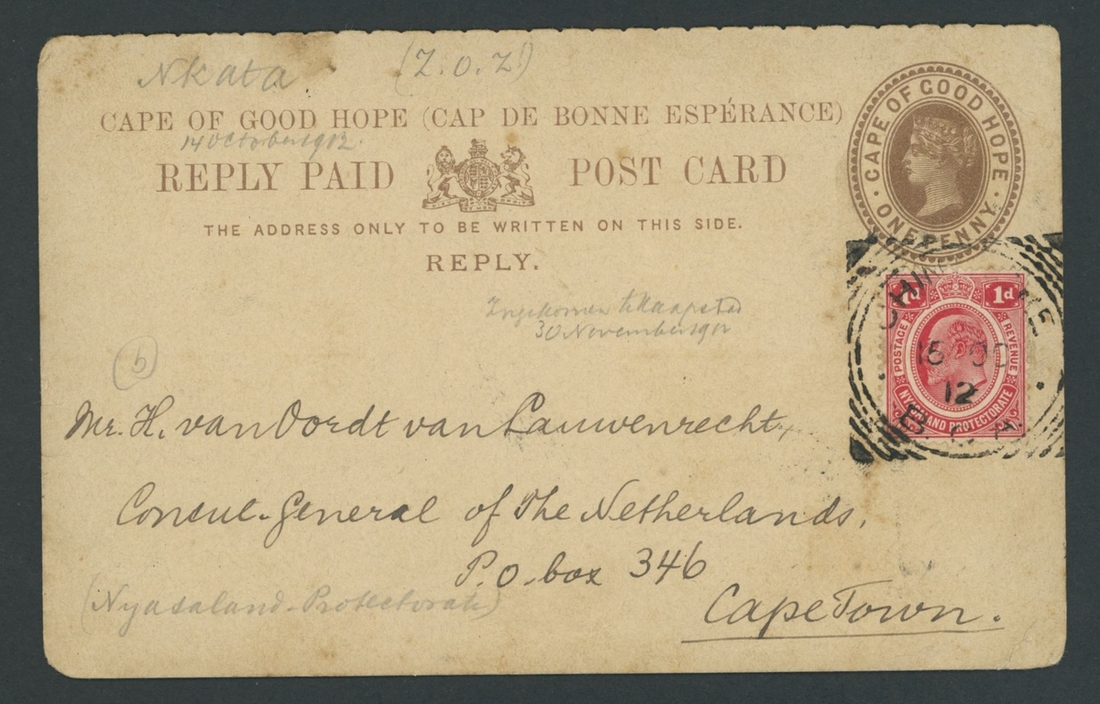 Nkata (Z.O.Z!)
CAPE OF GOOD HOPE (CAP DE BONNE ESPÉRANCE)
14 October 1912.
REPLY PAID POST CARD
THE ADDRESS ONLY TO BE WRITTEN ON THIS SIDE.
REPLY.
CAPE OF GOOD HOPE
ONE PENNY
1d 1d
POSTAGE REVENUE
NYASALAND PROTECTORATE
15 OC
12
Ingekomen te Kaapstad
30 November 1912
(5)
Mr. H. van Oordt van Lauwenrecht,
Consul-General of The Netherlands.
P.O. box 346
(Nyasaland-Protectorate)
CapeTown.